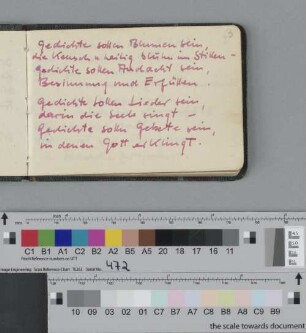 3
Gedichte sollen Blumen sein,
die keusch u. heilig blühn im Stillen –
Gedichte sollen Andacht sein,
Besinnung und Erfüllen.
Gedichte sollen Lieder sein,
darin die Seele singt –
Gedichte sollen Gebete sein,
in denen Gott erklingt.
C1 B1 A1 C2 B2 A2 B5 A5 20 18 17 16 11
472
10 09 03 02 01 C7 B7 A7 C8 B8 A8 C9 B9
the scale towards document